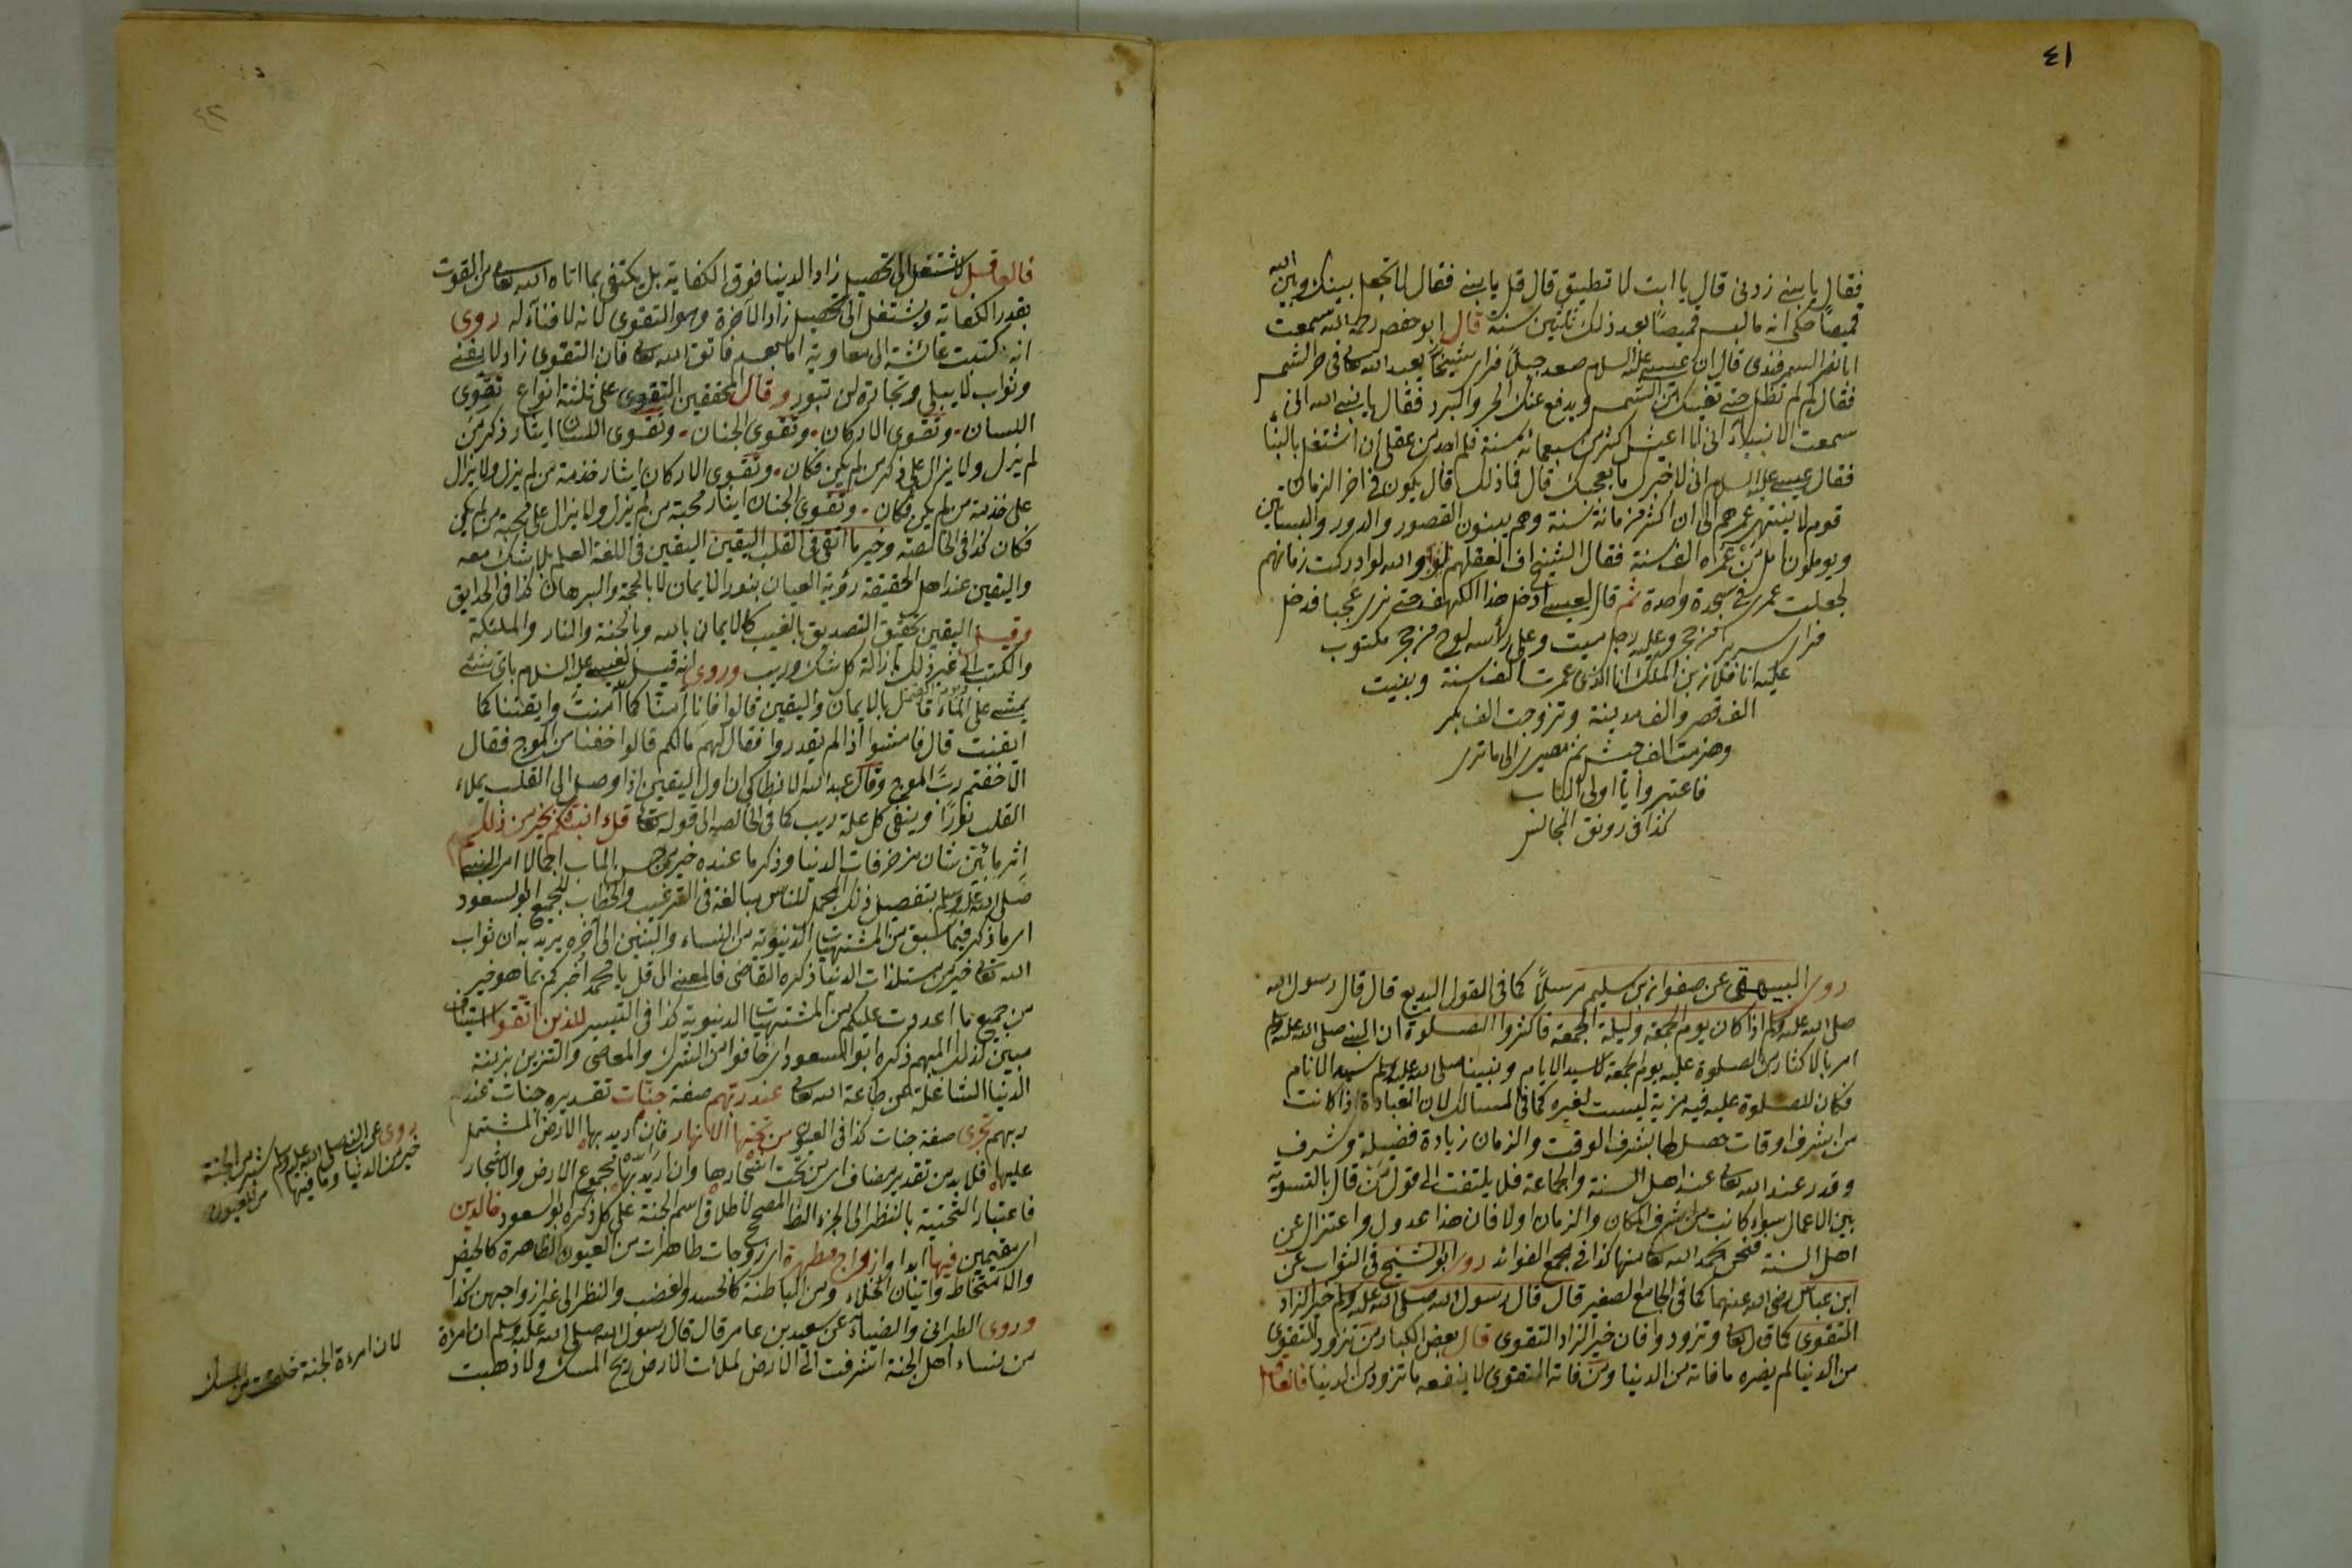 ٤١
فقال يا بني زدني قال يا ابت لا تطيق قال قل يا بني فقال لا تجعل بينك وبين الله
قميصا حكي انه ما لبس قميصا بعد ذلك ثلثين سنة قال ابو حفص رحمه الله سمعت
ابا نصر السمرقندي قال ان عيسى عليه السلام صعد جبلا فراى شيخا يعبد الله تعالى في حر الشمس
فقال له لم لم تظل حتى تقيك من الشمس ويدفع عنك الحر والبرد فقال يا نبي الله اني
سمعت الانبياء اني لا اعيش اكثر من سبعمائة سنة فلم اجد من عقلي ان اشتغل بالبناء
فقال عيسى عليه السلام اني لاخبرك ما يعجبك قال فما ذلك قال يكون في اخر الزمان
قوم لا ينتهي عمرهم الى ان اكثر من مائة سنة وهم يبنون القصور والدور والبساتين
ويوملون امل من عمره الف سنة فقال الشيخ اف لعقلهم والله لو ادركت زمانهم
لجعلت عمري في سجدة واحدة ثم قال لعيسى ادخل هذا الكهف حتى ترى عجبا فدخل
فراى سريرا من حجر وعليه رجل ميت وعلى رأسه لوح من حجر مكتوب
عليه انا فلان بن الملك انا الذي عمرت الف سنة وبنيت
الف قصر والف مدينة وتزوجت الف بكر
وهزمت الف جيش ثم مصيري الى ما ترى
فاعتبروا يا اولى الالباب
كذا في رونق المجالس
روى البيهقي عن صفوان بن سليم مرسلا كما في القول البديع قال قال رسول الله
صلى الله عليه وسلم اذا كان يوم الجمعة وليلة الجمعة فاكثروا الصلوة ان النبي صلى الله عليه وسلم
امر بالاكثار من الصلوة عليه يوم الجمعة لسيد الايام ونبينا صلى الله عليه وسلم سيد الانام
فكان للصلوة عليه فيه مزية ليست لغيره كما في المسالك لان العبادة اذا كانت
من اشرف اوقات حصل لها بشرف الوقت والزمان زيادة فضيلة وشرف
وقدر عند الله تعالى عند اهل السنة والجماعة فلا يلتفت الى قول من قال بالتسوية
بين الاعمال سواء كانت من شرف المكان والزمان او لا فان هذا عدول واعتزال عن
اهل السنة فنحن بحمد الله تعالى منها كذا في مجمع الفوائد روى ابو الشيخ في الثواب عن
ابن عباس رضي الله عنهما كما في الجامع الصغير قال قال رسول الله صلى الله عليه وسلم خير الزاد
التقوى كما قال تعالى وتزودوا فان خير الزاد التقوى قال بعض الكبار من تزود التقوى
من الدنيا لم يضره ما فاته من الدنيا ومن فاته التقوى لا ينفعه ما تزود من الدنيا فالعاقل
٤٢
فالعاقل لا يشتغل الى تحصيل زاد الدنيا فوق الكفاية بل يكتفي بما اتاه الله تعالى من القوت
بقدر الكفاية ويشتغل الى تحصيل زاد الآخرة وهو التقوى لانه لا فناء له روى
انه كتبت عائشة الى معاوية اما بعد فاتق الله تعالى فان التقوى زاد لا يفنى
وثواب لا يبلى وتجارة لن تبور وقال المحققين التقوى على ثلثة انواع تقوى
اللسان وتقوى الاركان وتقوى الجنان وتقوى اللسان ايثار ذكر من
لم يزل ولا يزال على ذكر من لم يكن فكان وتقوى الاركان ايثار خدمة من لم يزل ولا يزال
على خدمة من لم يكن فكان وتقوى الجنان ايثار محبة من لم يزل ولا يزال على محبة من لم يكن
فكان كذا في الخالصة وخير ما القي في القلب اليقين اليقين في اللغة العلم بلا شك معه
واليقين عند اهل الحقيقة رؤية العيان بنور الايمان لا بالحجة والبرهان كذا في الحدايق
وقيل اليقين تحقيق التصديق بالغيب كالايمان بالله وبالجنة والنار والملئكة
والكتب الى غير ذلك بازالة كل شك وريب وروى انه قيل لعيسى عليه السلام باى شئ
يمشى على الماء قال بالايمان واليقين قالوا فانا آمنا كما آمنت وايقنا كما
ايقنت قال فامشوا اذا لم يقدروا فقال لهم ما لكم قالوا خفنا من الموج فقال
الا خفتم رب الموج وقال عبد الله الانطاكي ان اول اليقين اذا وصل الى القلب يملاء
القلب نورا وينفي كل علة ريب كما في الخالصة الى قوله تعالى قل أؤنبئكم بخير من ذلكم
اثر ما بين شان مزخرفات الدنيا وذكر ما عنده خير من حسن المآب اجمالا امر النبي
صلى الله عليه وسلم بتفصيل ذلك المجمل للناس مبالغة في الترغيب والخطاب للجميع ابو السعود
اى ما ذكر فيما سبق من المشتهيات الدنيوية من النساء والبنين الى آخره يريد به ان ثواب
الله تعالى خير من مستلذات الدنيا ذكره القاضي فالمعنى اى قل يا محمد اخبركم بما هو خير
من جميع ما اعددت عليكم من المشتهيات الدنيوية كذا في التيسير للذين اتقوا استيناف
مبين لذلك المبهم ذكره ابو السعود اى خافوا من الشرك والمعاصي والتزين بزينة
الدنيا الشاغلة عن طاعة الله تعالى عند ربهم صفة جنات تقديره جنات عند
ربهم تجرى صفة جنات كذا في العيون من تحتها الانهار فان اريد بها الارض المشتمل
عليها فلا بد من تقدير مضاف اى من تحت اشجارها وان اريد بها مجموع الارض والاشجار
فاعتبار التحتية بالنظر الى الجزء الظاهر المصحح لاطلاق اسم الجنة على كل ذكره ابو السعود خالدين
اى مقيمين فيها ابدا وازواج مطهرة اى زوجات طاهرات من العيوب الظاهرة كالحيض
والامتخاط واتيان الخلاء ومن الباطنة كالحسد والغضب والنظر الى غير ازواجهن كذا
وروى الطبراني والضياء عن سعيد بن عامر قال قال رسول الله صلى الله عليه وسلم ان امراة
من نساء اهل الجنة اشرفت الى الارض لملأت الارض ريح المسك ولاذهبت
روى عن النبي صلى الله عليه وسلم شبر من الجنة
خير من الدنيا وما فيها من العيون
لان امرءة الجنة خلقت من المسك